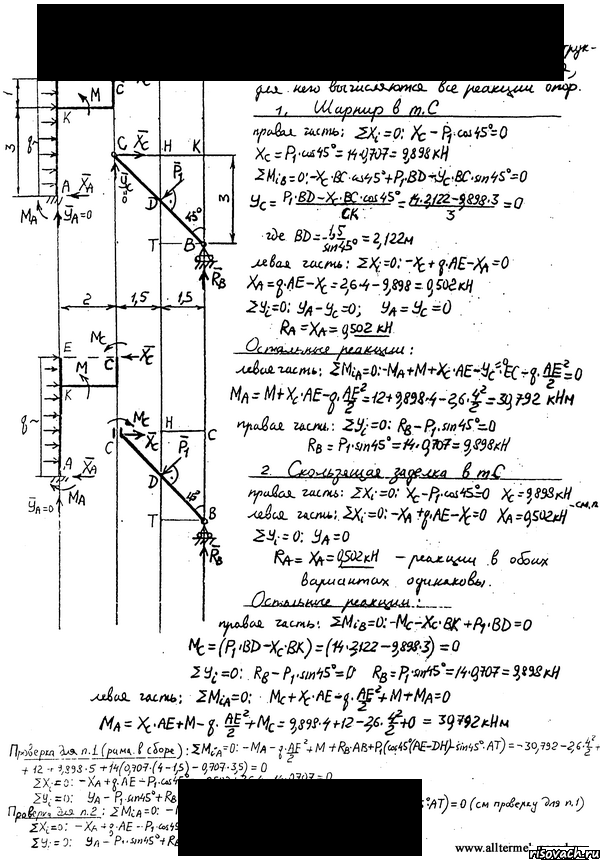 для него вычисляются все реакции опор.
1. Шарнир в т.С
правая часть: ΣXi=0: Xc-P1·cos45°=0
Xc=P1·cos45°=14·0,707=9,898кН
ΣMiB=0:-Xc·BC·cos45°+P1·BD-Yc·BC·sin45°=0
Yc=(P1·BD-Xc·BC·cos45°)/CK=(14·2,122-9,898·3)/3=0
где BD=1,5/sin45°=2,122м
левая часть: ΣXi=0:-Xc+q·AE-XA=0
XA=q·AE-Xc=2,6·4-9,898=0,502кН
ΣYi=0: YA-Yc=0; YA=Yc=0
RA=XA=0,502кН
Остальные реакции:
левая часть: ΣMiA=0:-MA+M+Xc·AE-Yc·EC-q·AE²/2=0
MA=M+Xc·AE-q·AE²/2=12+9,898·4-2,6·4²/2=30,792кНм
правая часть: ΣYi=0: RB-P1·sin45°=0
RB=P1·sin45°=14·0,707=9,898кН
2. Скользящая заделка в т.С
правая часть: ΣXi=0: Xc-P1·cos45°=0 Xc=9,898кН
левая часть: ΣXi=0: -XA+q·AE-Xc=0 XA=0,502кН
ΣYi=0: YA=0
RA=XA=0,502кН - реакции в обоих
вариантах одинаковы.
Остальные реакции:
правая часть: ΣMiB=0:-Mc-Xc·BK+P1·BD=0
Mc=(P1·BD-Xc·BK)=(14·2,122-9,898·3)=0
ΣYi=0: RB-P1·sin45°=0 RB=P1·sin45°=14·0,707=9,898кН
левая часть: ΣMiA=0: Mc+Xc·AE-q·AE²/2+M+MA=0
MA=Xc·AE+M-q·AE²/2+Mc=9,898·4+12-2,6·4²/2+0=30,792кНм
Проверка для п.1 (рама в сборе): ΣMiA=0: -MA-q·AE²/2+M+RB·AB+P1(cos45°(AE-DH)-sin45°·AT)=-30,792-2,6·4²/2+
+12+9,898·5+14(0,707·(4-1,5)-0,707·3,5)=0
ΣXi=0: -XA+q·AE-P1·cos45°
ΣYi=0: YA-P1·sin45°+RB
Проверка для п.2: ΣMiA=0:
5°AT)=0 (см проверку для п.1)
ΣXi=0: -XA+q·AE-P1·cos45°
ΣYi=0: YA-P1·sin45°+RB
www.allterme
risovach.ru
1
3
q
M
K
C
A
XA
MA
YA=0
C
Xc
H
K
Yc=0
P1
D
45°
3
T
B
RB
2
1,5
1,5
E
Mc
C
Xc
M
K
q
A
XA
MA
YA=0
Mc
C
Xc
H
C
P1
D
45°
T
B
RB